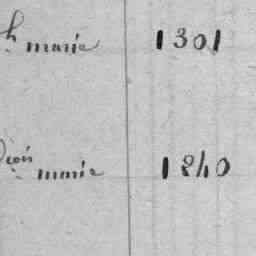 h marie 1301
marie 1840